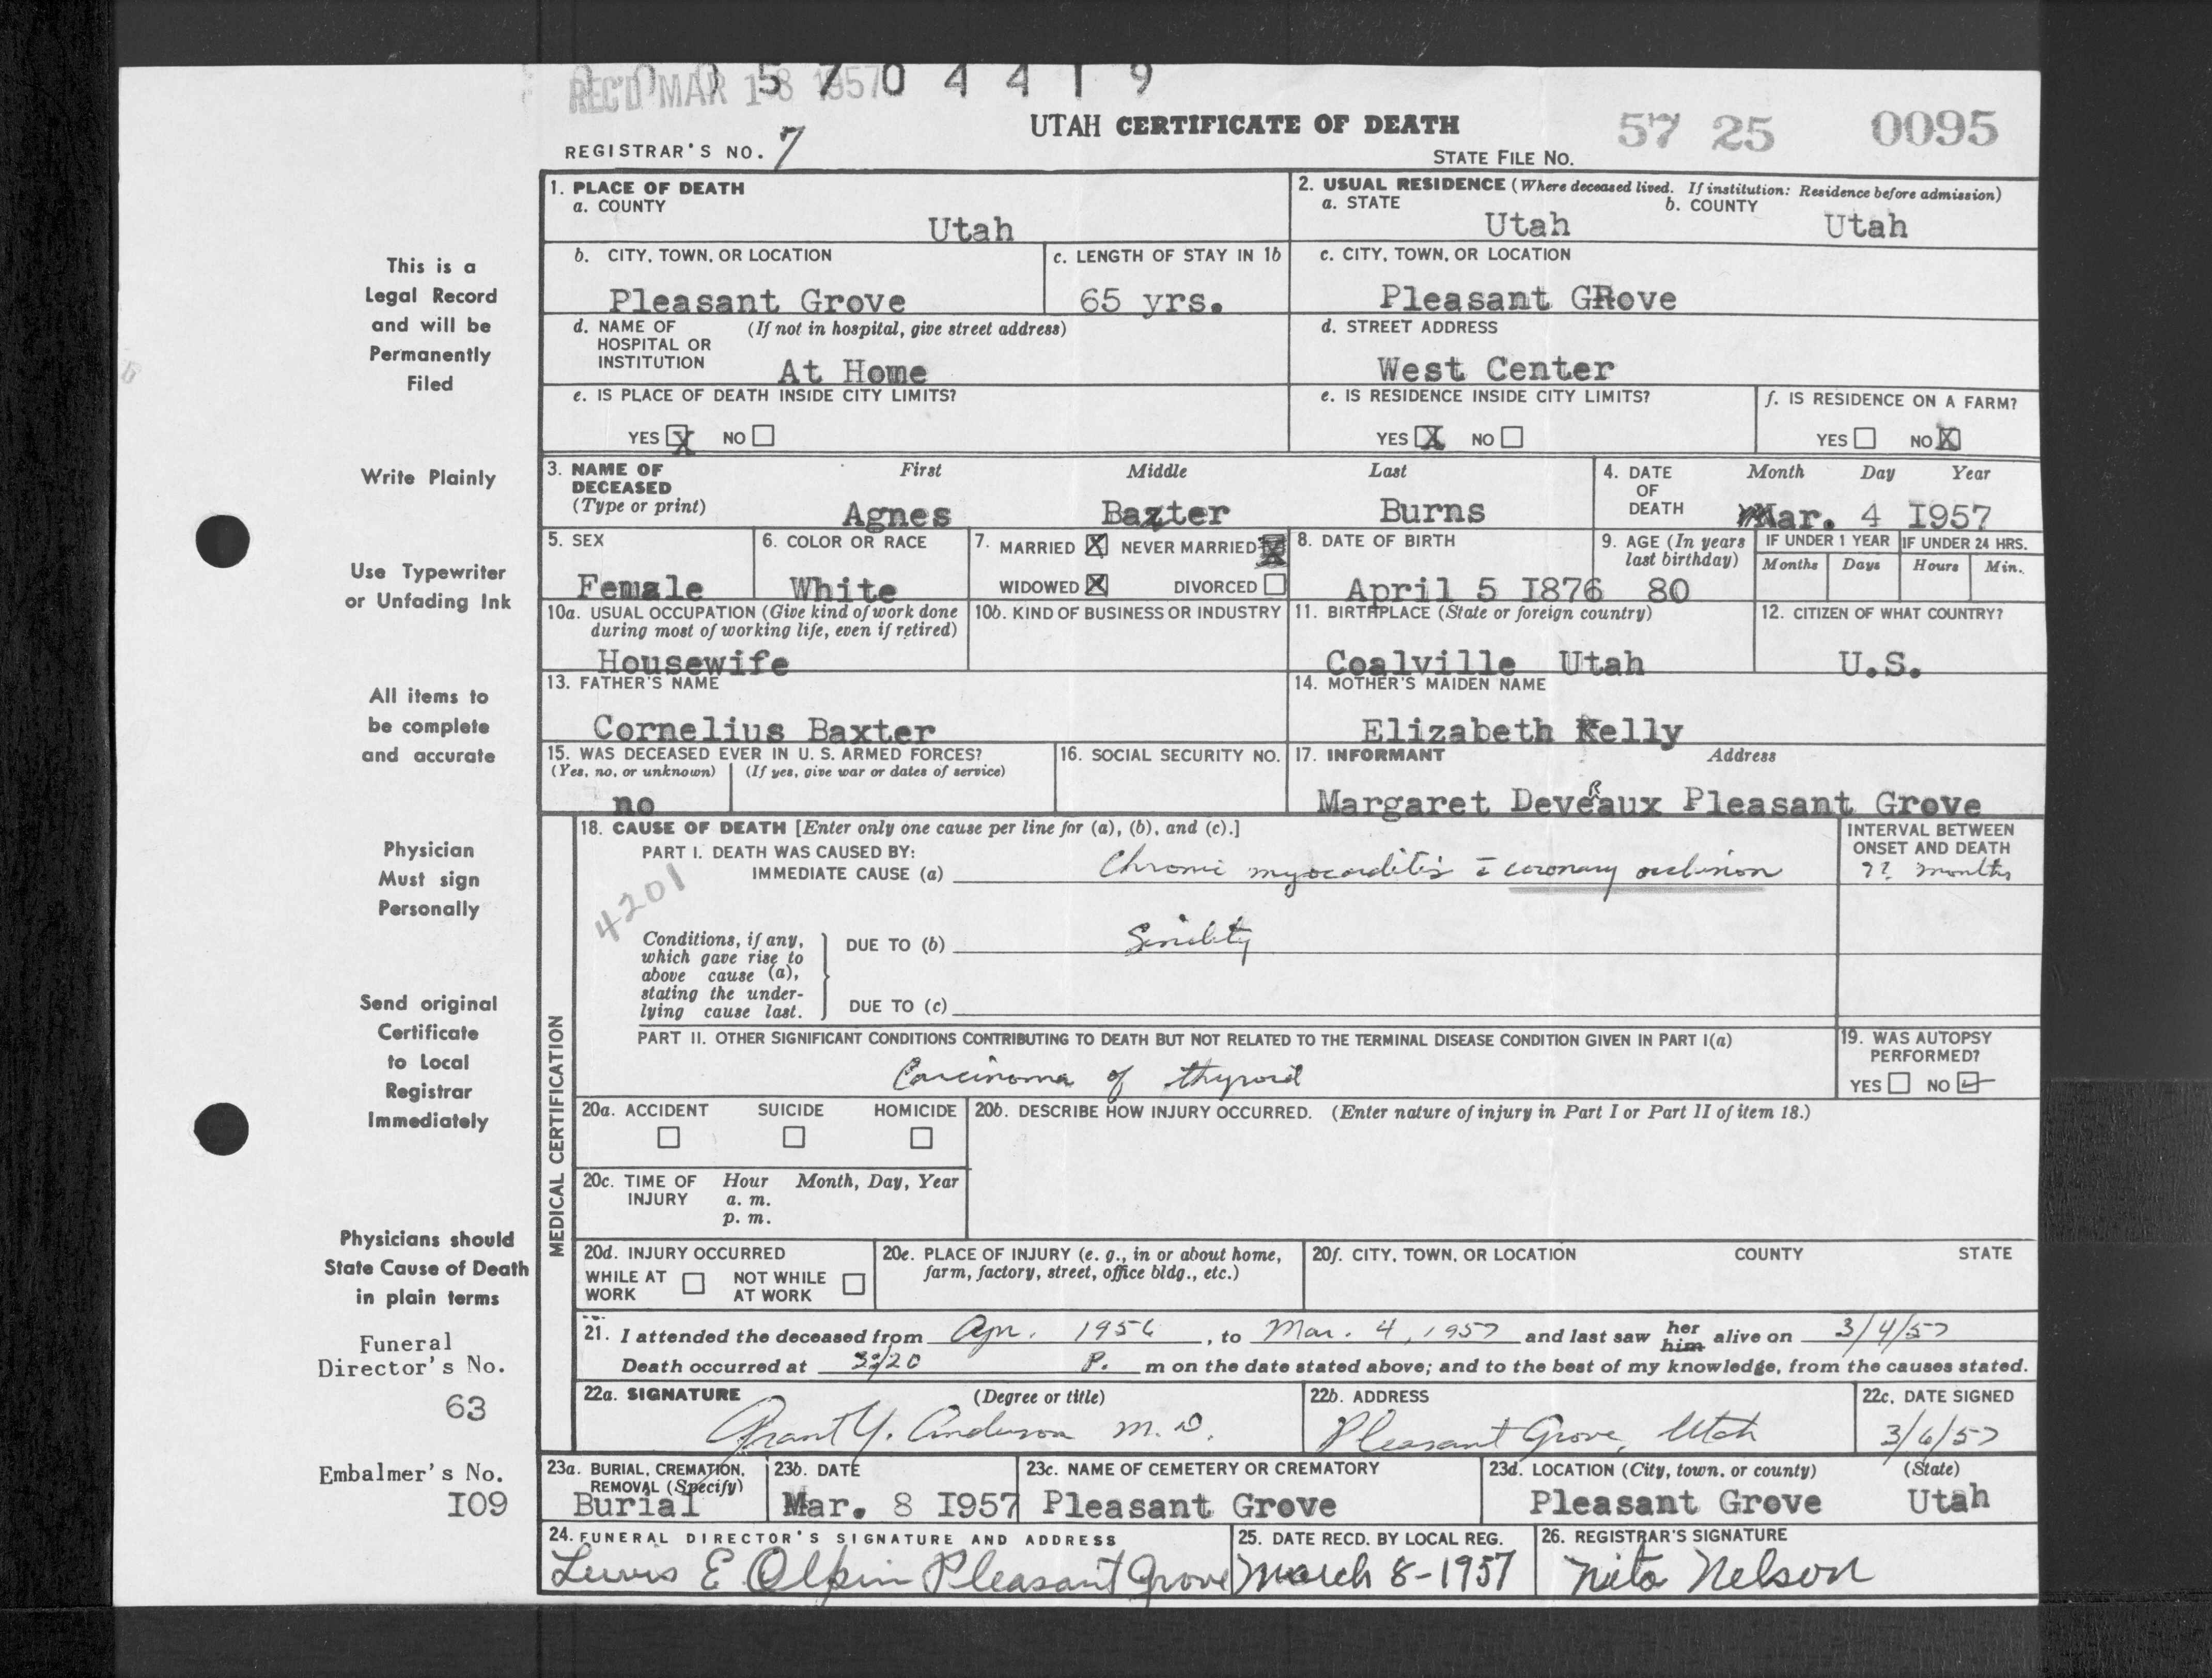 REC'D MAR 18 1957
5 7 0 4 4 1 9
UTAH CERTIFICATE OF DEATH
REGISTRAR'S NO. 7
STATE FILE NO. 57 25 0095
1. PLACE OF DEATH
a. COUNTY
Utah
2. USUAL RESIDENCE (Where deceased lived. If institution: Residence before admission)
a. STATE Utah
b. COUNTY Utah
b. CITY, TOWN, OR LOCATION
Pleasant Grove
c. LENGTH OF STAY IN 1b
65 yrs.
c. CITY, TOWN, OR LOCATION
Pleasant GRove
d. NAME OF HOSPITAL OR INSTITUTION (If not in hospital, give street address)
At Home
d. STREET ADDRESS
West Center
e. IS PLACE OF DEATH INSIDE CITY LIMITS?
YES X NO
e. IS RESIDENCE INSIDE CITY LIMITS?
YES X NO
f. IS RESIDENCE ON A FARM?
YES NO X
3. NAME OF DECEASED (Type or print)
First Middle Last
Agnes Baxter Burns
4. DATE OF DEATH
Month Day Year
Mar. 4 I957
5. SEX
Female
6. COLOR OR RACE
White
7. MARRIED X NEVER MARRIED
WIDOWED X DIVORCED
8. DATE OF BIRTH
April 5 I876
9. AGE (In years last birthday)
80
IF UNDER 1 YEAR
Months Days
IF UNDER 24 HRS.
Hours Min.
10a. USUAL OCCUPATION (Give kind of work done during most of working life, even if retired)
Housewife
10b. KIND OF BUSINESS OR INDUSTRY
11. BIRTHPLACE (State or foreign country)
Coalville Utah
12. CITIZEN OF WHAT COUNTRY?
U.S.
13. FATHER'S NAME
Cornelius Baxter
14. MOTHER'S MAIDEN NAME
Elizabeth Kelly
15. WAS DECEASED EVER IN U. S. ARMED FORCES?
(Yes, no, or unknown) (If yes, give war or dates of service)
no
16. SOCIAL SECURITY NO.
17. INFORMANT Address
Margaret Deveraux Pleasant Grove
MEDICAL CERTIFICATION
18. CAUSE OF DEATH [Enter only one cause per line for (a), (b), and (c).]
PART I. DEATH WAS CAUSED BY:
IMMEDIATE CAUSE (a) Chronic myocarditis c̄ coronary occlusion
INTERVAL BETWEEN ONSET AND DEATH
?? months
4201
Conditions, if any, which gave rise to above cause (a), stating the underlying cause last.
DUE TO (b) Senility
DUE TO (c)
PART II. OTHER SIGNIFICANT CONDITIONS CONTRIBUTING TO DEATH BUT NOT RELATED TO THE TERMINAL DISEASE CONDITION GIVEN IN PART I(a)
Carcinoma of thyroid
19. WAS AUTOPSY PERFORMED?
YES NO
20a. ACCIDENT SUICIDE HOMICIDE
20b. DESCRIBE HOW INJURY OCCURRED. (Enter nature of injury in Part I or Part II of item 18.)
20c. TIME OF INJURY Hour Month, Day, Year
a. m.
p. m.
20d. INJURY OCCURRED
WHILE AT WORK NOT WHILE AT WORK
20e. PLACE OF INJURY (e. g., in or about home, farm, factory, street, office bldg., etc.)
20f. CITY, TOWN, OR LOCATION COUNTY STATE
21. I attended the deceased from Apr. 1956, to Mar. 4, 1957 and last saw her him alive on 3/4/57
Death occurred at 3:20 P. m on the date stated above; and to the best of my knowledge, from the causes stated.
22a. SIGNATURE (Degree or title)
Grant Y. Anderson M.D.
22b. ADDRESS
Pleasant Grove, Utah
22c. DATE SIGNED
3/6/57
23a. BURIAL, CREMATION, REMOVAL (Specify)
Burial
23b. DATE
Mar. 8 I957
23c. NAME OF CEMETERY OR CREMATORY
Pleasant Grove
23d. LOCATION (City, town, or county) (State)
Pleasant Grove Utah
24. FUNERAL DIRECTOR'S SIGNATURE AND ADDRESS
Lewis E Olpin Pleasant Grove
25. DATE RECD. BY LOCAL REG.
March 8-1957
26. REGISTRAR'S SIGNATURE
Nita Nelson
This is a
Legal Record
and will be
Permanently
Filed
Write Plainly
Use Typewriter
or Unfading Ink
All items to
be complete
and accurate
Physician
Must sign
Personally
Send original
Certificate
to Local
Registrar
Immediately
Physicians should
State Cause of Death
in plain terms
Funeral
Director's No.
63
Embalmer's No.
I09